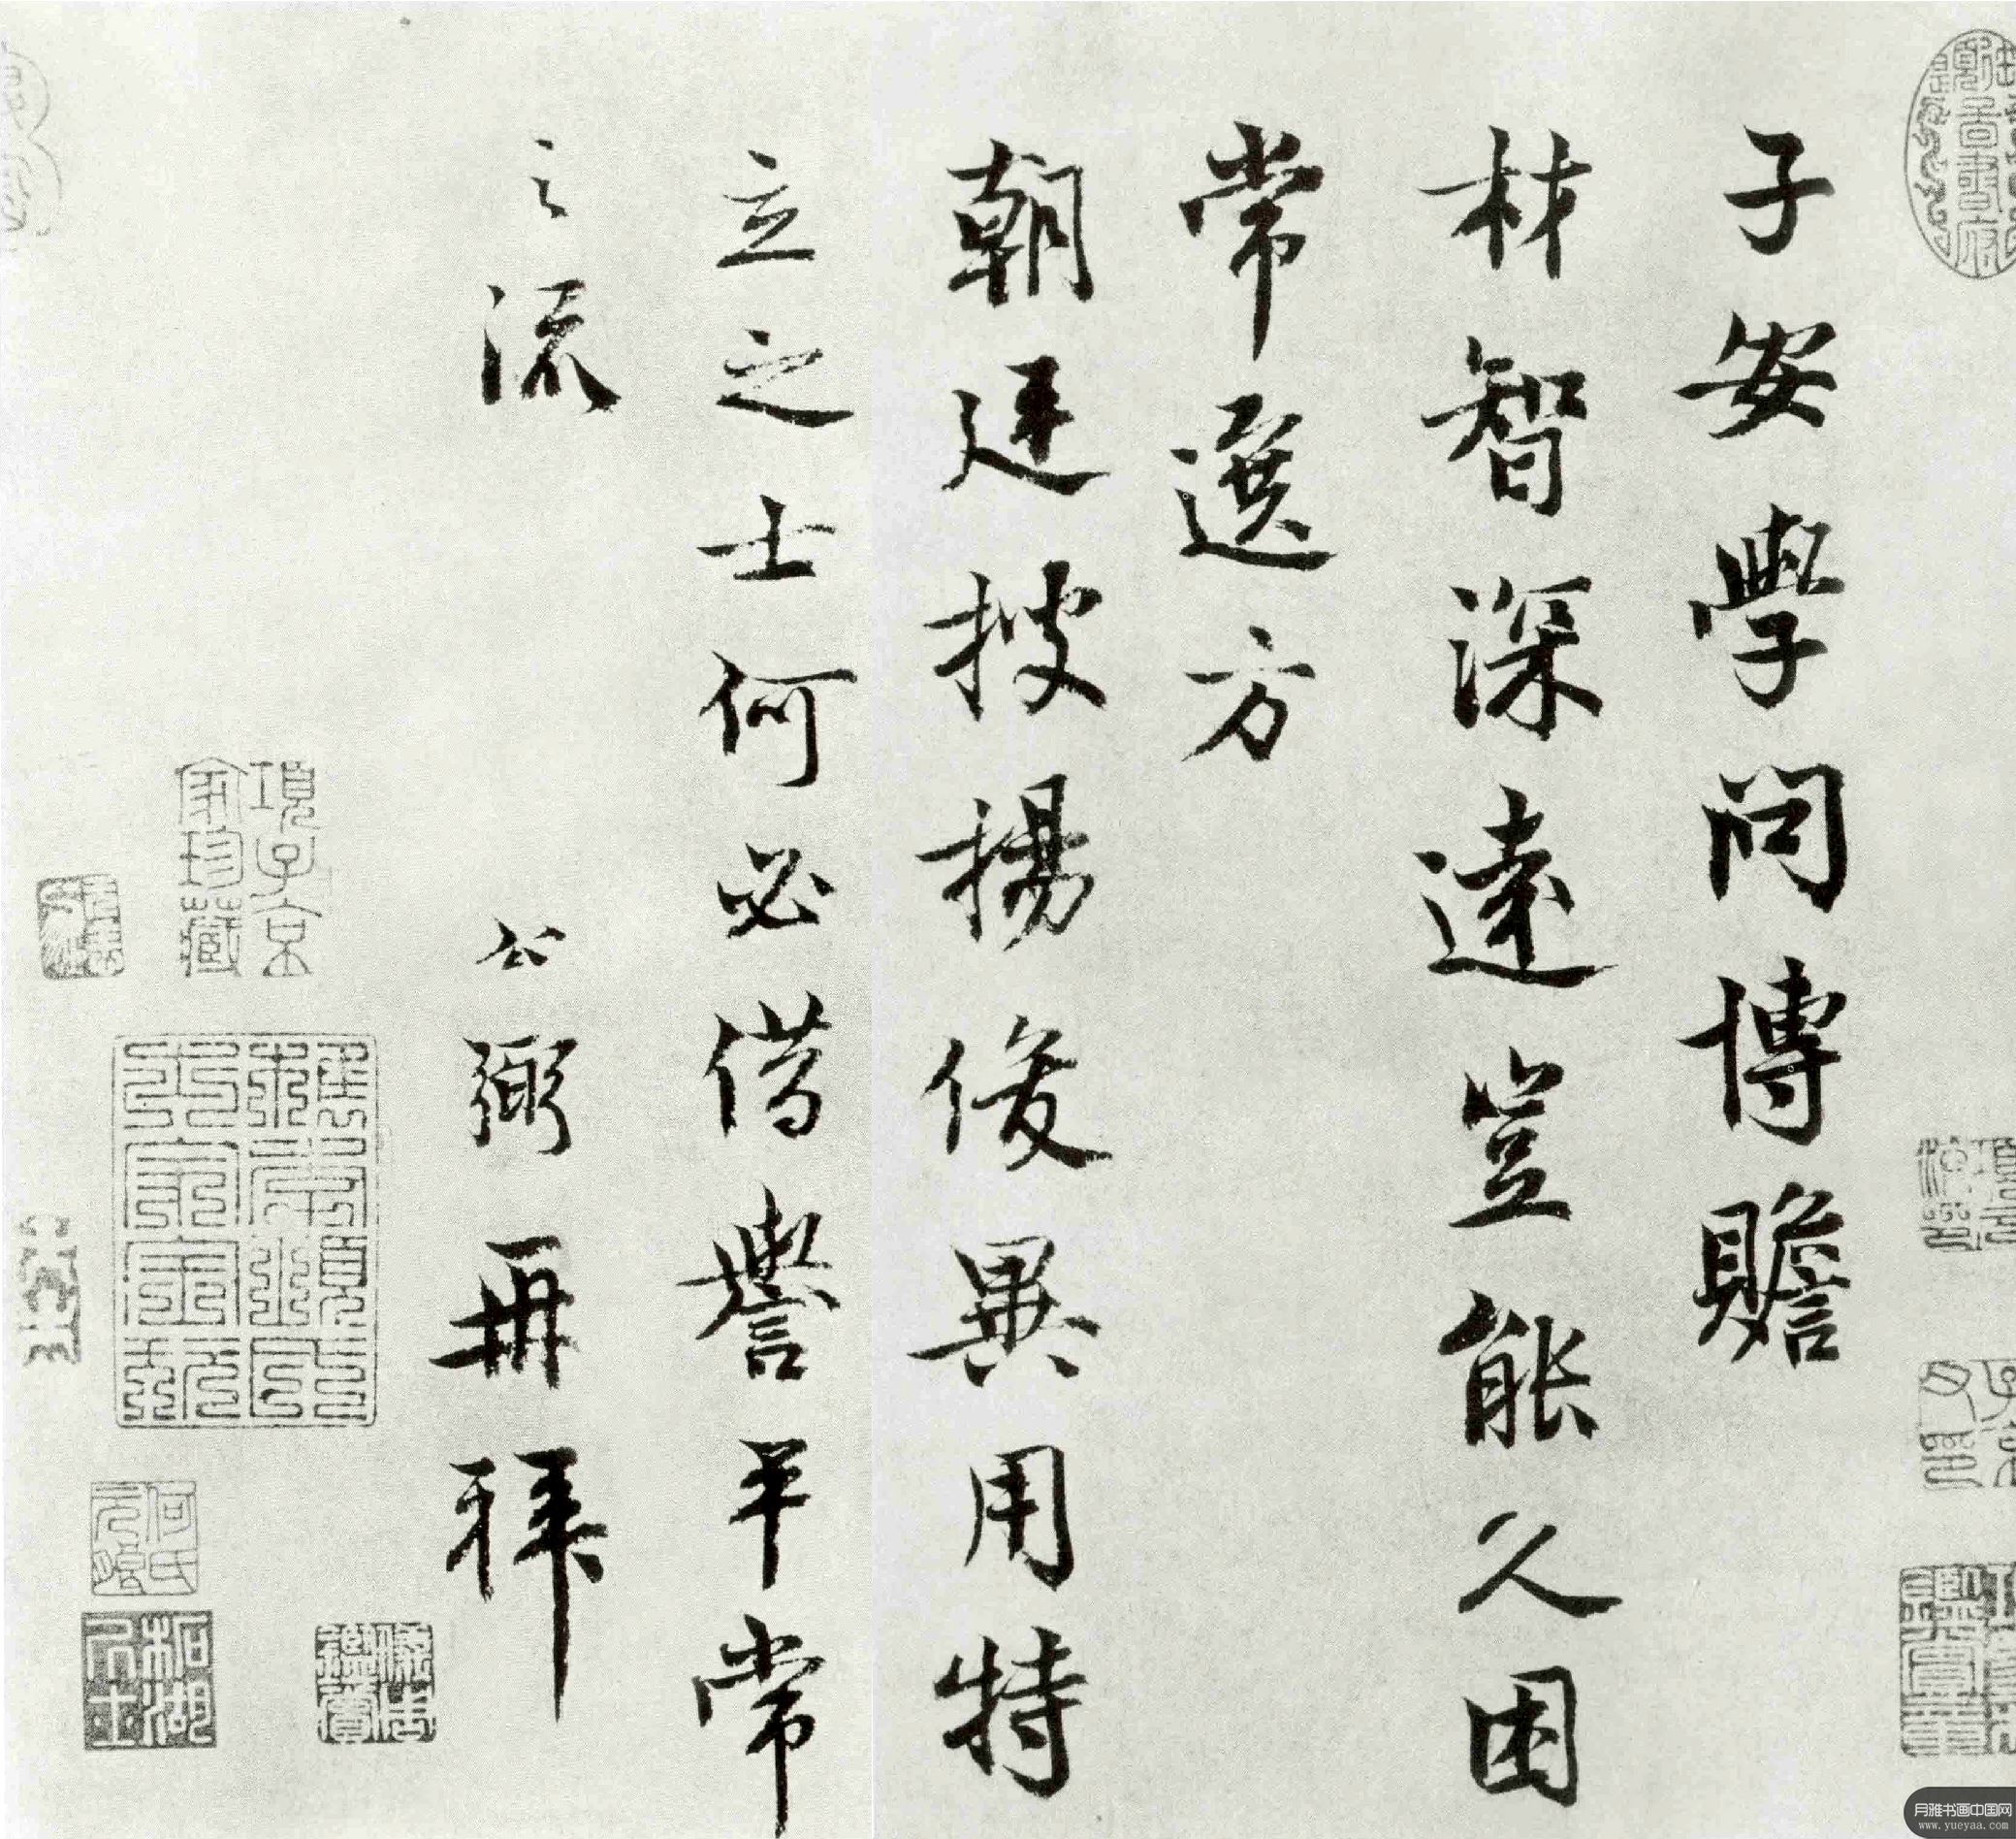 子安學問博贍
材智深遠豈能久困
常選方
朝廷搜揚俊異用特
立之士何必借譽平常
之流
公弼再拜
項子京家珍藏
何氏元朗
柘湖居士
月雅书画中国网
www.yueyaa.com